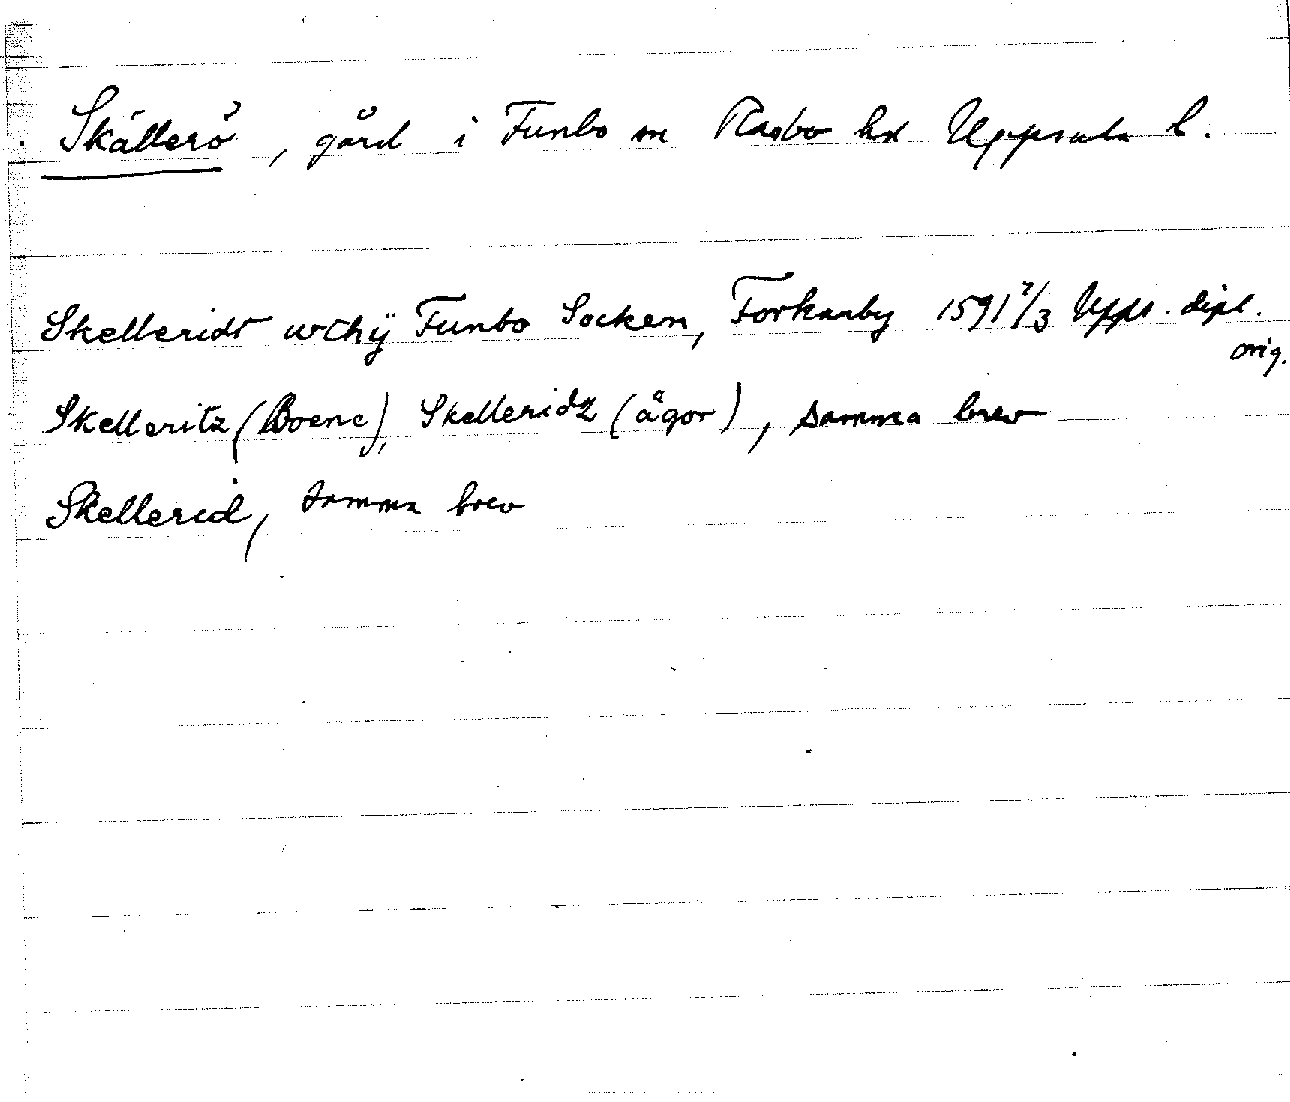 Skällerö, gård i Funbo sn Rasbo hd Uppsala l.
Skelleridt wthÿ Funbo Socken, Forkarby 1591 7/3 Upps. dipl.
orig.
Skelleritz (Boene), Skelleridz (ägor), samma brev
Skellerid, samma brev